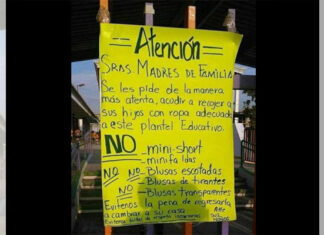 = Atención =
SRAS. MADRES DE FAMILIA
Se les pide de la manera
más atenta, acudir a recojer a
sus hijos con ropa adecuada
a este plantel Educativo.
NO - mini-short
- minifaldas
NO NO - Blusas escotadas
NO - Blusas de tirantes
- Blusas transparentes
Evitenos la pena de regresarla
a cambiar a su casa